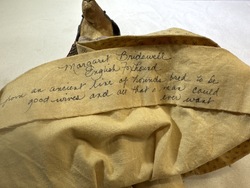 Margarit Bridewell
English Foxhound
from an ancient line of hounds bred to be
good wives and all that a man could
ever want